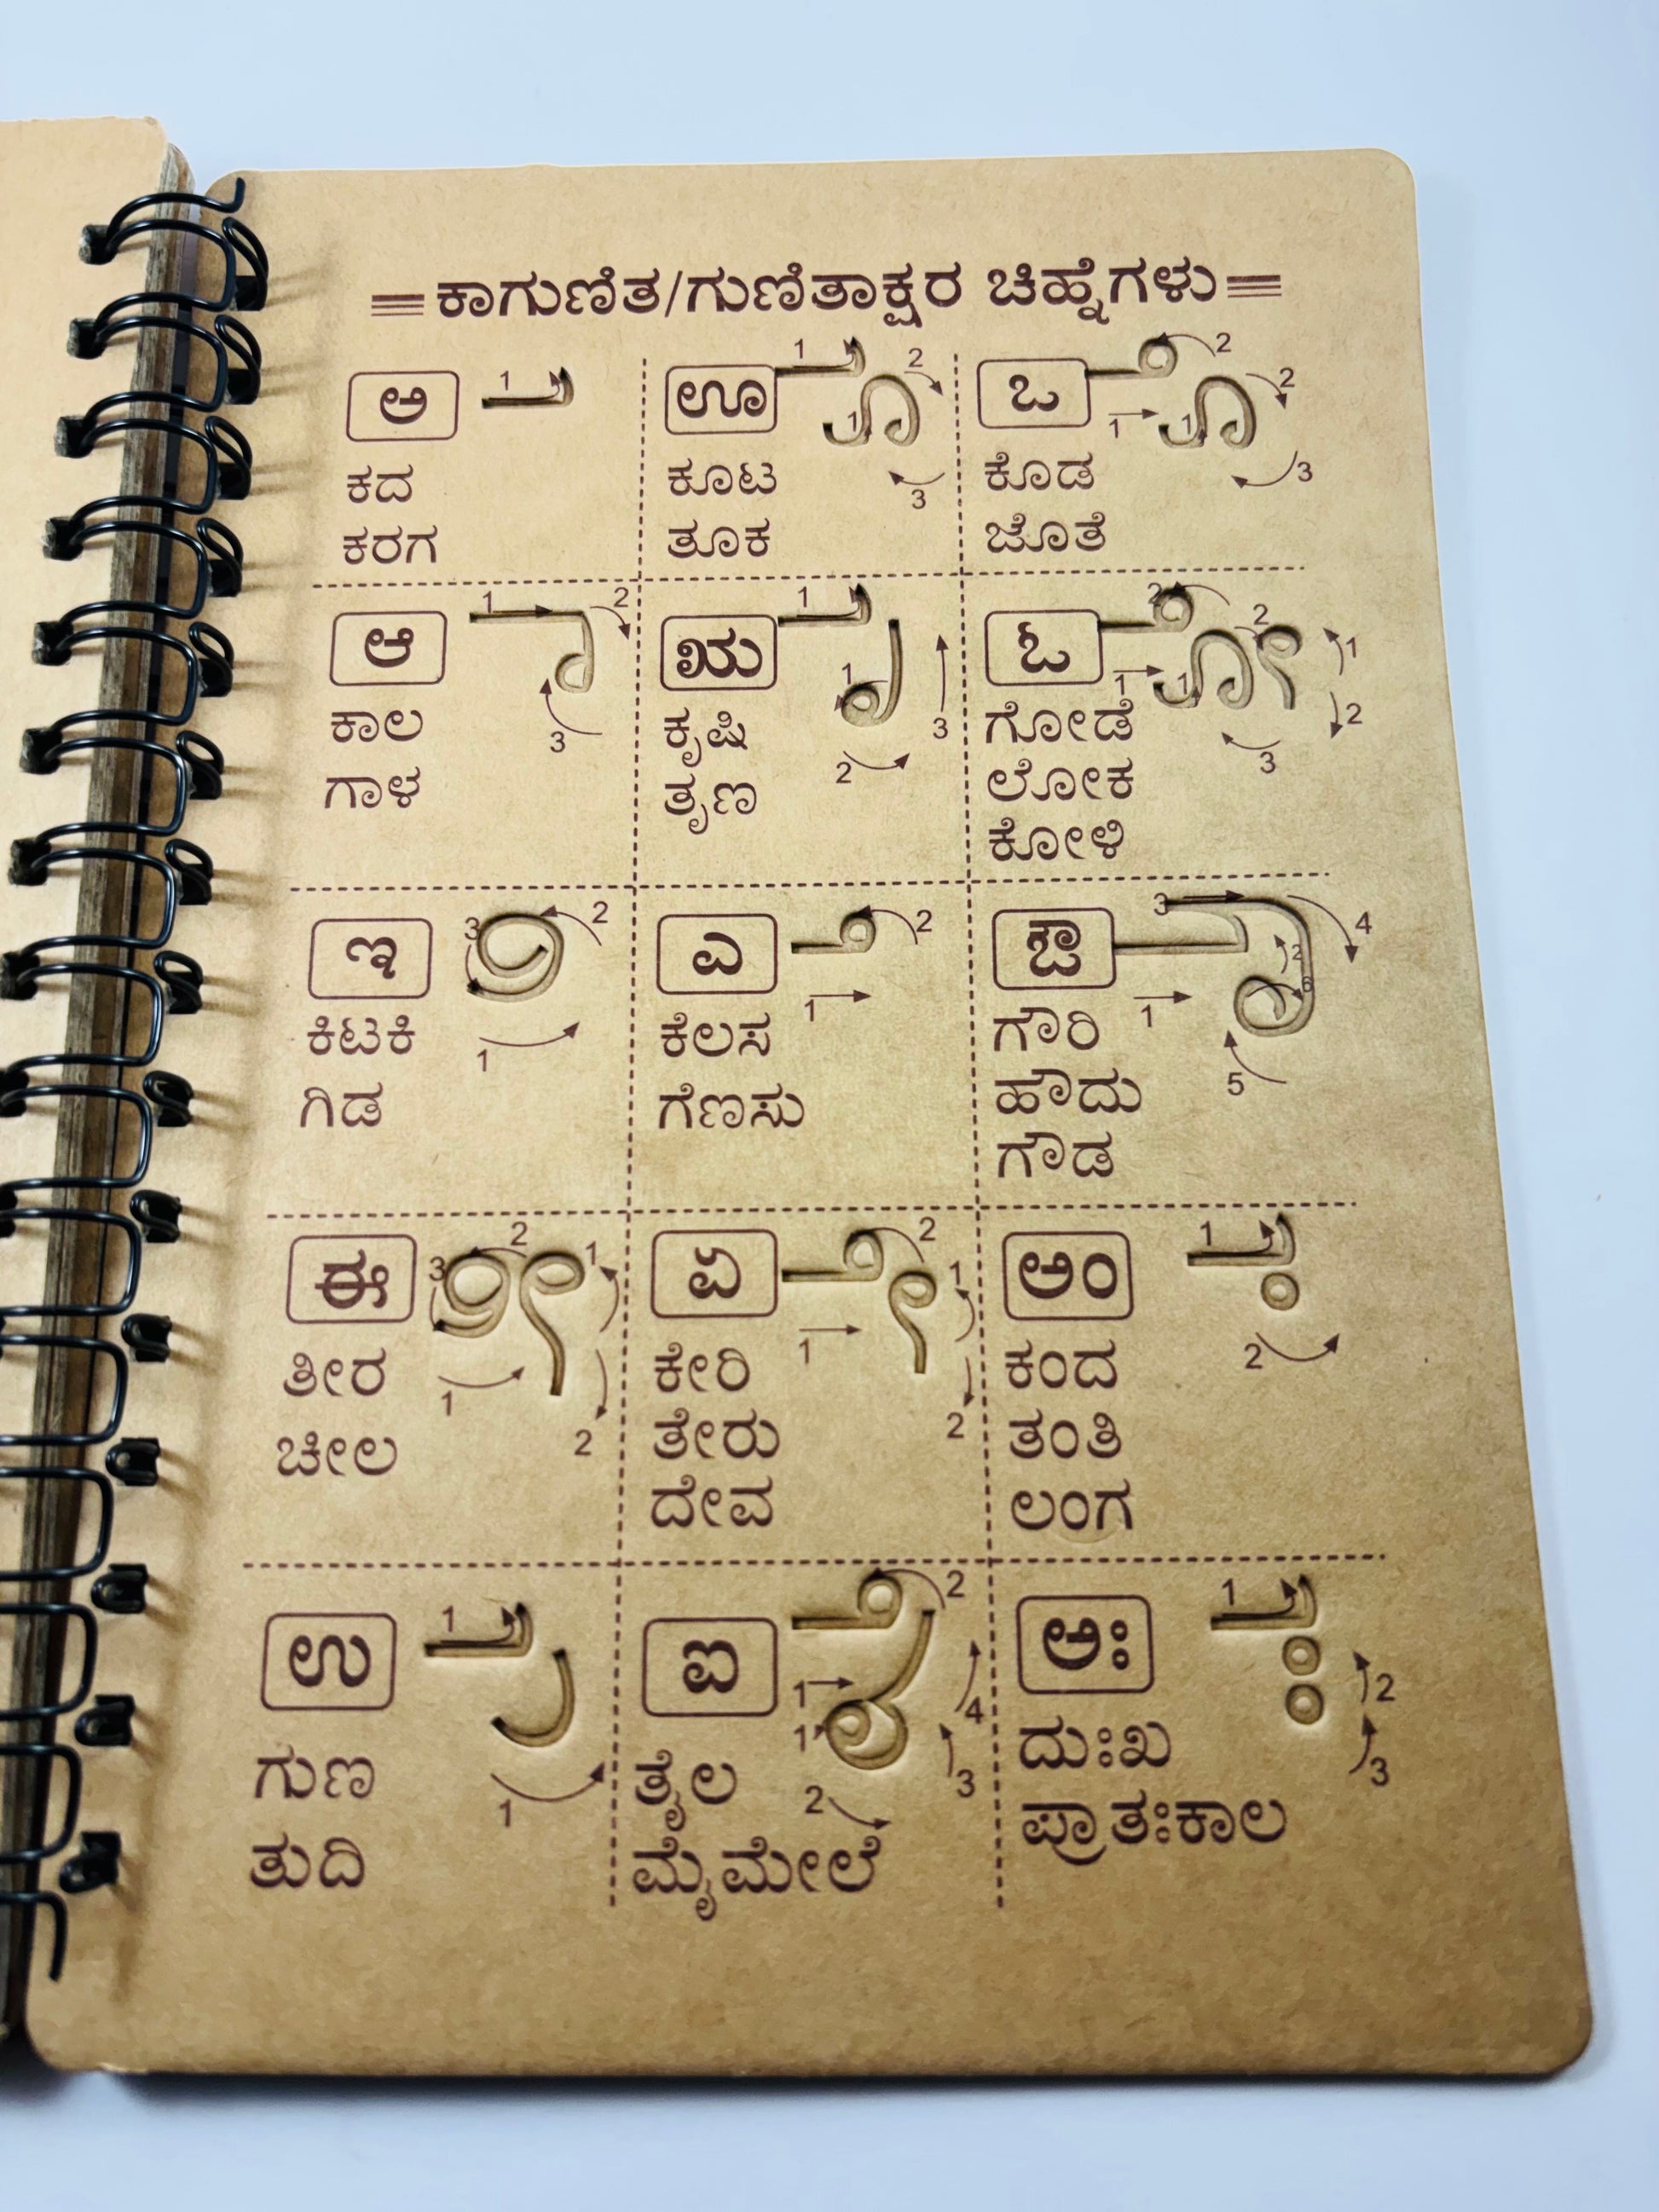 ಕಾಗುಣಿತ/ಗುಣಿತಾಕ್ಷರ ಚಿಹ್ನೆಗಳು
ಅ 1
ಕದ
ಕರಗ
ಆ 1 2 3
ಕಾಲ
ಗಾಳ
ಇ 3 2 1
ಕಿಟಕಿ
ಗಿಡ
ಈ 3 2 1 1 2
ತೀರ
ಚೀಲ
ಉ 1 1
ಗುಣ
ತುದಿ
ಊ 1 2 1 3
ಕೂಟ
ತೂಕ
ಋ 1 1 3 2
ಕೃಷಿ
ತೃಣ
ಎ 2 1
ಕೆಲಸ
ಗೆಣಸು
ಏ 2 1 1 2
ಕೇರಿ
ತೇರು
ದೇವ
ಐ 2 1 1 4 3 2
ತೈಲ
ಮೈಮೇಲೆ
ಒ 2 2 1 1 3
ಕೊಡ
ಜೊತೆ
ಓ 2 2 1 1 1 2 3
ಗೋಡೆ
ಲೋಕ
ಕೋಳಿ
ಔ 3 4 2 6 1 5
ಗೌರಿ
ಹೌದು
ಗೌಡ
ಅಂ 1 2
ಕಂದ
ತಂತಿ
ಲಂಗ
ಅಃ 1 2 3
ದುಃಖ
ಪ್ರಾತಃಕಾಲ